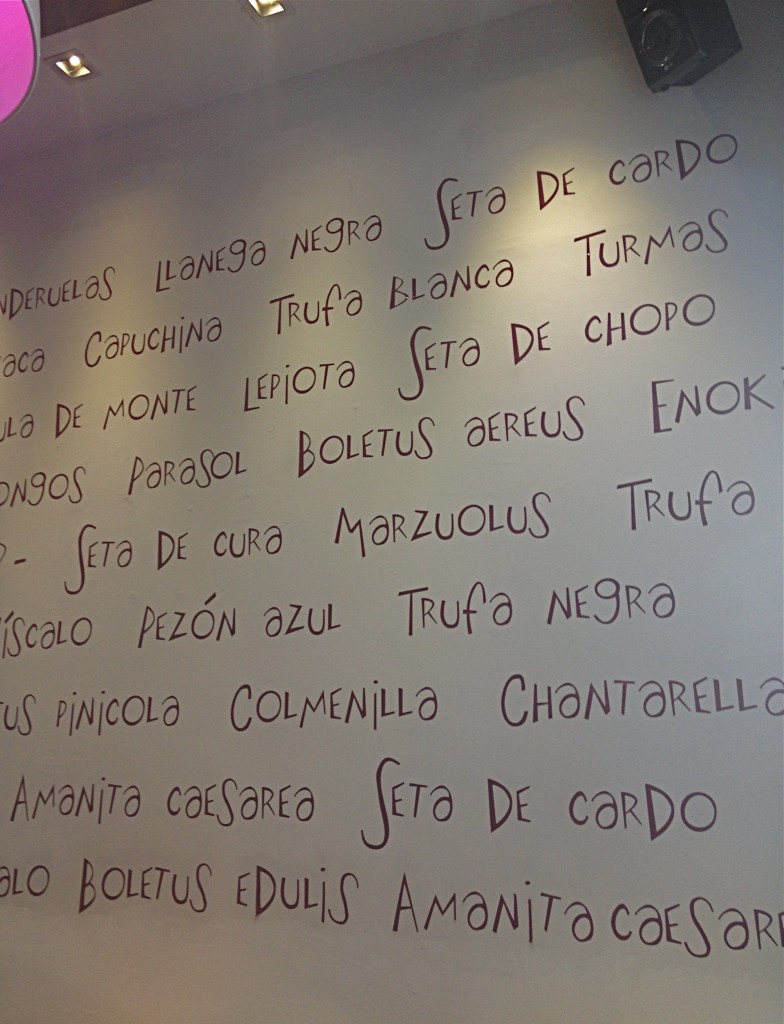 NDERUELAS LLANEGA NEGRA SETA DE CARDO
ACA CAPUCHINA TRUFA BLANCA TURMAS
ULA DE MONTE LEPIOTA SETA DE CHOPO
ONGOS PARASOL BOLETUS AEREUS ENOK
- SETA DE CURA MARZUOLUS TRUFA
ÍSCALO PEZÓN AZUL TRUFA NEGRA
TUS PINICOLA COLMENILLA CHANTARELLA
AMANITA CAESAREA SETA DE CARDO
ALO BOLETUS EDULIS AMANITA CAESARE